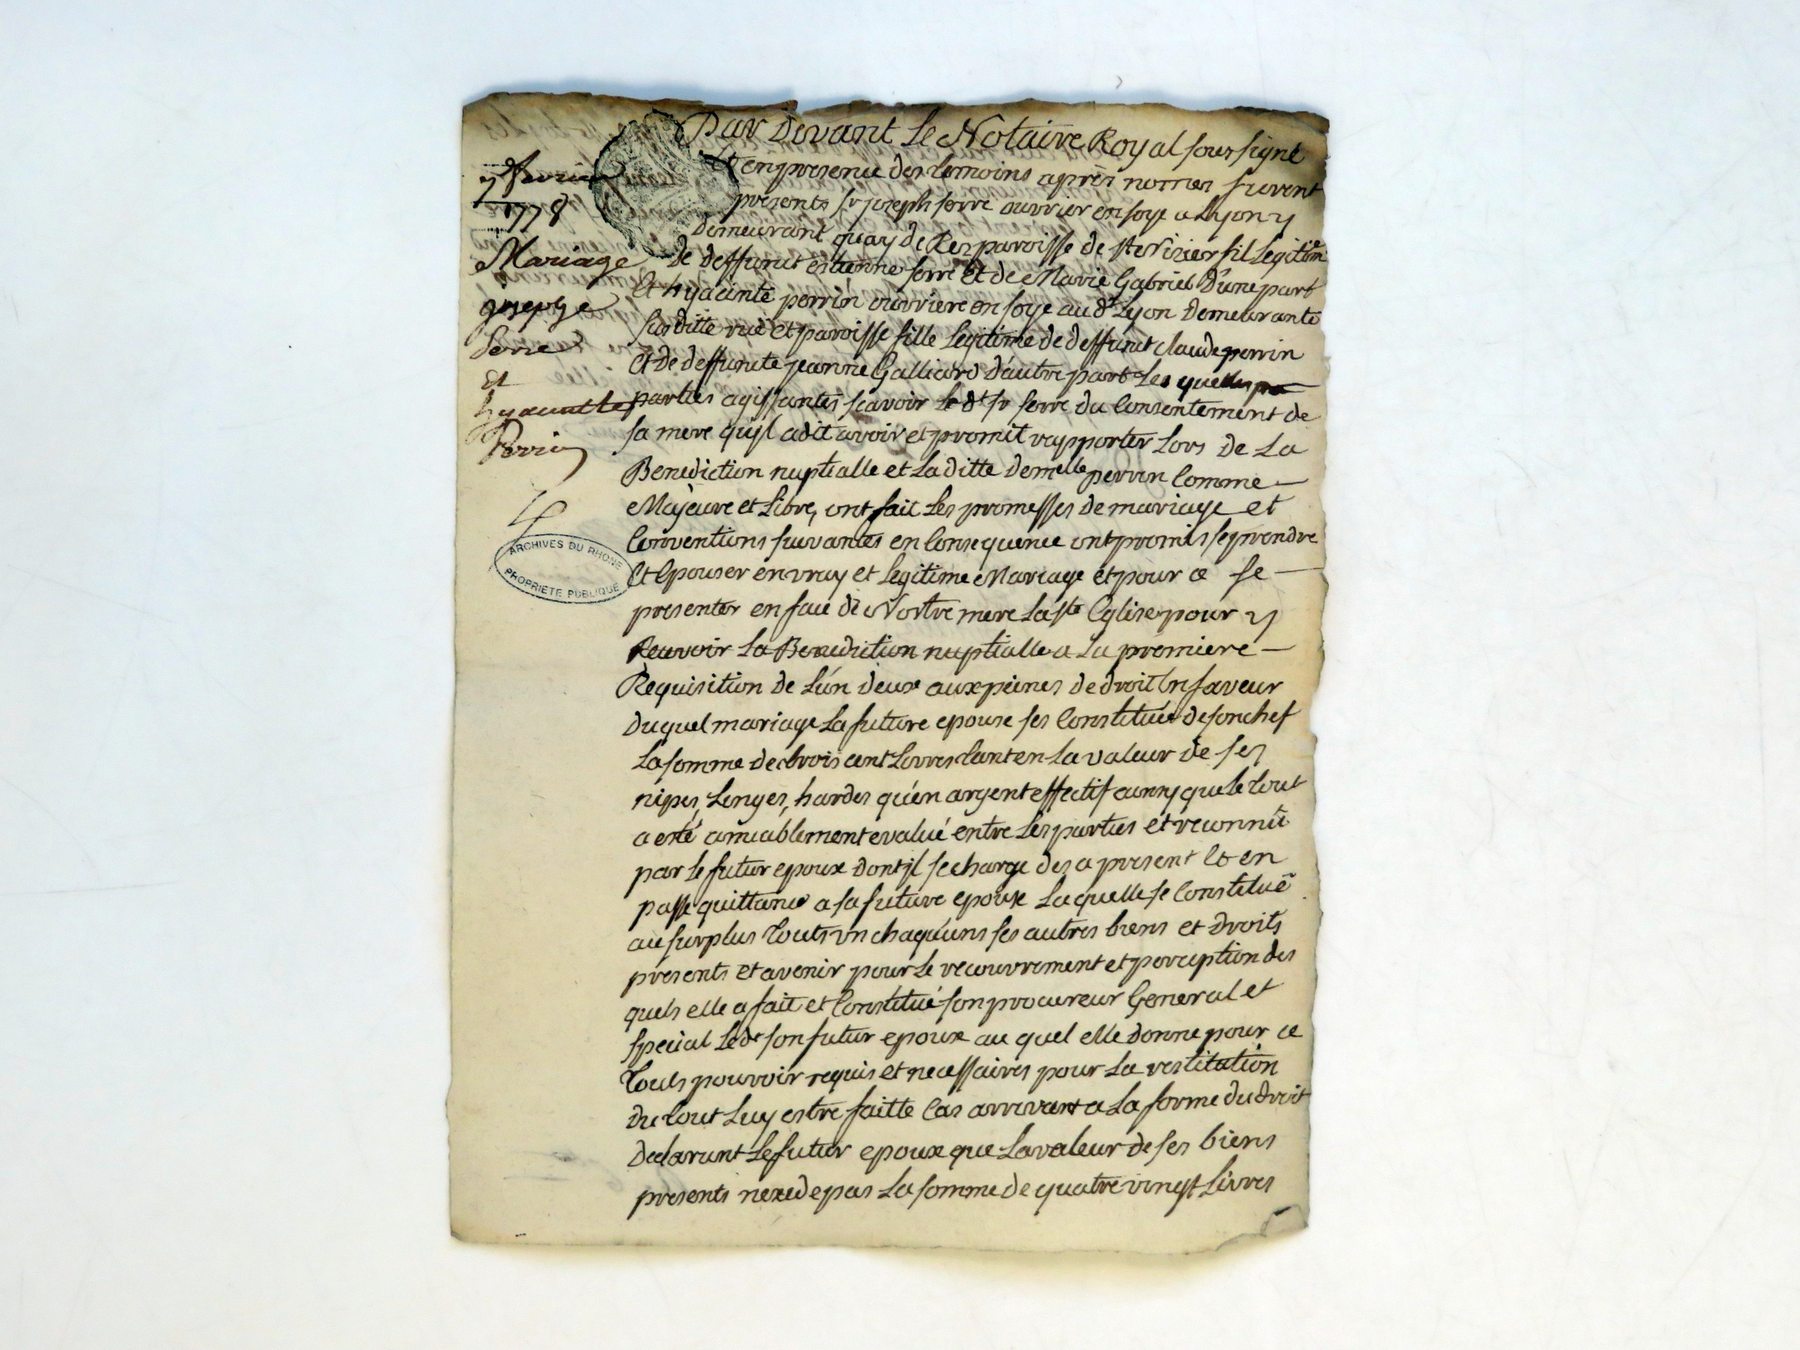 7 fevrier
1778
Mariage
joseph
Serre
Et
hyacinthe
Perrin
ARCHIVES DU RHONE
PROPRIETE PUBLIQUE
Par Devant Le Notaire Royal soussigné
Et en presence des temoins après nomes furent
presents sr joseph serre ouvrier en soye a Lyon y
demeurant quay de Retz paroisse de st Nizier fil Legitime
de deffunt estienne serre et de Marie Gabriel D'une part
Et hyacinte perrin ouvriere en soye aud Lyon demeurante
susditte ruë et paroisse fille Legitime de deffunt claude perrin
et de deffunte jeanne Galliard D'autre part Les quelles
parties agissantes scavoir le dt sr serre du Consentement de
sa mere qu'jl a dit avoir et promit rapporter Lors de La
Benediction nuptialle et La ditte demelle perrin Comme
Majeure et Libre, ont fait Les promesses de mariage et
Conventions suivantes en Consequence ont promis se prendre
Et Epouser en vray et Legitime Mariage et pour ce se
presenter en face de Nostre mere La ste Eglise pour y
Recevoir La Benediction nuptialle a La premiere
Requisition de L'un deux aux peines de droit En faveur
Duquel mariage La future epouse ses Constituée de son chef
La somme de trois cent Livres tant en La valeur de ses
nipes, Linges, hardes qu'en argent effectif que le tout
a esté amiablement evalué entre Les parties et reconnû
par Le futur epoux dont jl se charge des a present Et en
passe quittance a sa future epouse La quelle se Constituê
au surplus touts un chaq'uns ses autres biens et droits
presents et avenir pour Le recouvrement et perception des
quels elle a fait et Constitué son procureur General et
special Le dt son futur epoux au quel elle donne pour ce
touts pouvoir requis et necessaires pour La restitution
Du tout Luy estre faitte Cas arrivant a La forme du droit
Declarant Le futur epoux que La valeur de ses biens
presents nexede pas La somme de quatre vingt Livres